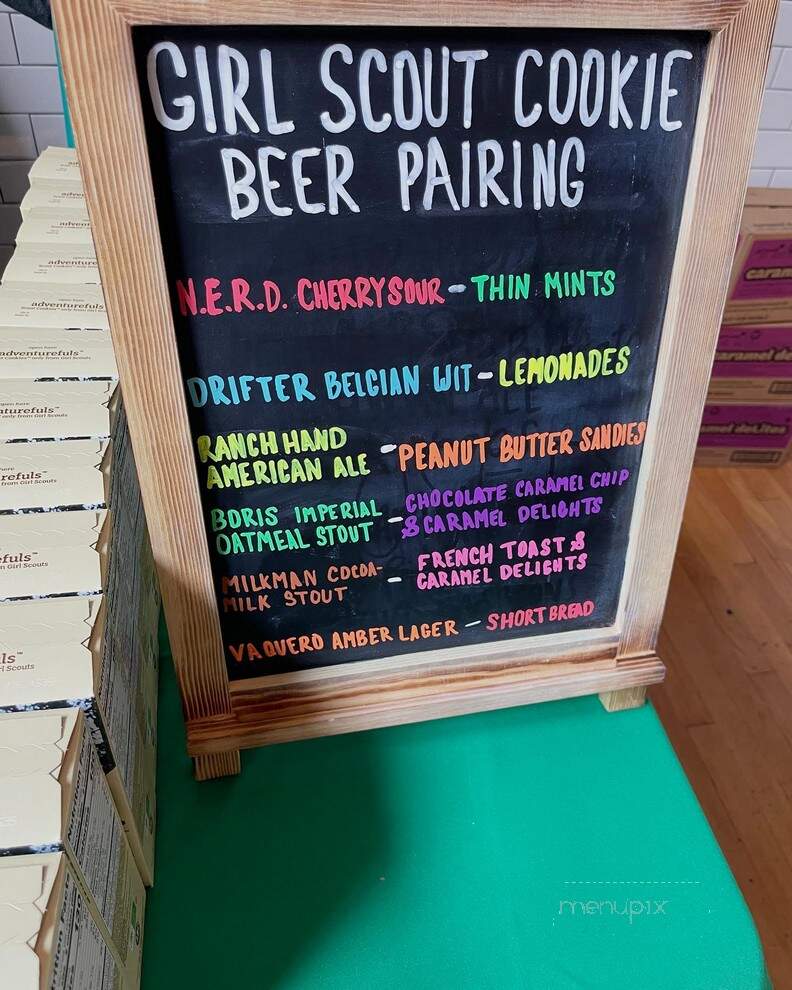 GIRL SCOUT COOKIE
BEER PAIRING
N.E.R.D. CHERRY SOUR - THIN MINTS
DRIFTER BELGIAN WIT - LEMONADES
RANCH HAND
AMERICAN ALE - PEANUT BUTTER SANDIES
BORIS IMPERIAL
OATMEAL STOUT - CHOCOLATE CARAMEL CHIP
& CARAMEL DELIGHTS
MILKMAN COCOA-
MILK STOUT - FRENCH TOAST &
CARAMEL DELIGHTS
VAQUERO AMBER LAGER - SHORT BREAD
adventurefuls™
adventurefuls™
adventurefuls™
nturefuls™
only from Girl Scouts
refuls™
from Girl Scouts
efuls™
m Girl Scouts
ls™
l Scouts
caram
aramel de
mel deLites
menupix